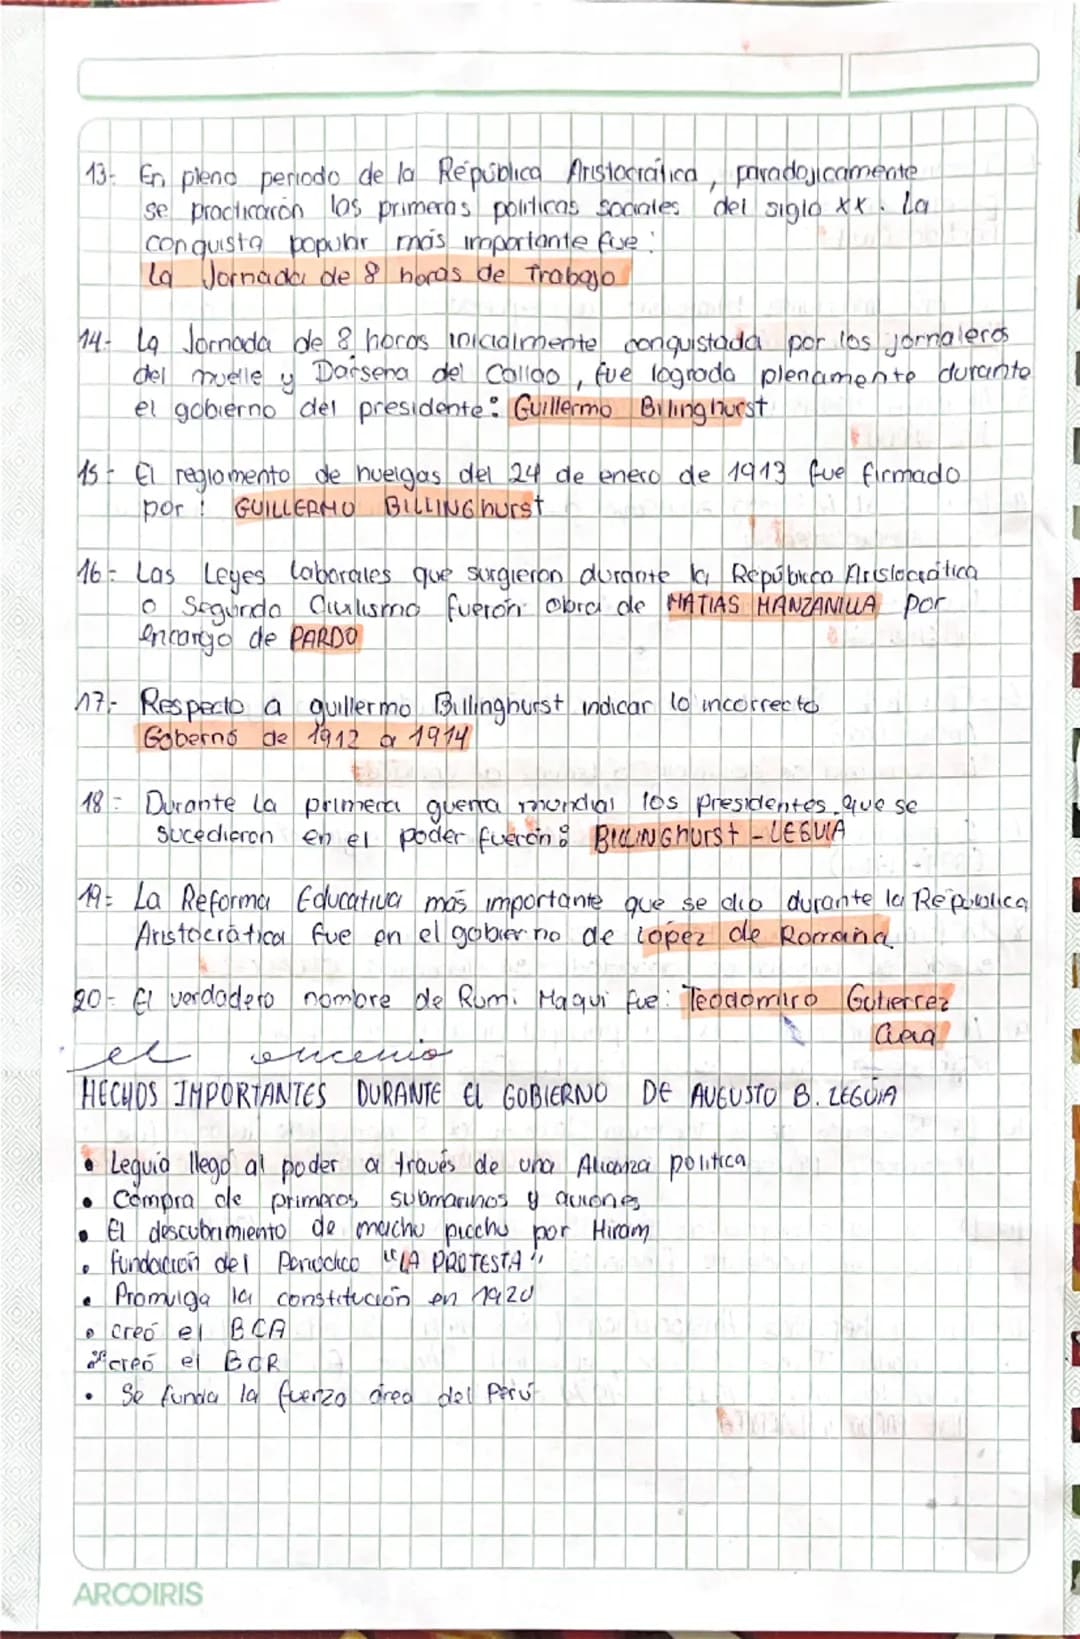 13- En pleno periodo de la República Aristocrática, paradojicamente
se practicarón las primeras politicas sociales del siglo XX. La
conquista popular más importante fue:
La Jornada de 8 horas de Trabajo
14- La Jornada de 8 horas inicialmente conquistada por los jornaleros
del muelle y Darsena del Callao, fue lograda plenamente durante
el gobierno del presidente: Guillermo Bilinghurst
15- El reglamento de huelgas del 24 de enero de 1913 fue firmado
por: GUILLERMO BILLINGhurst
16- Las Leyes laborales que surgieron durante la República Aristocrática
o Segundo Civilismo fuerón obra de MATIAS MANZANILLA por
encargo de PARDO
17- Respecto a guillermo Billinghurst indicar lo incorrecto
Gobernó de 1912 a 1914
18- Durante la primera guerra mundial los presidentes que se
sucedieron en el poder fuerón: BILLINGhurst - LEGUIA
19- La Reforma Educativa más importante que se dio durante la República
Aristocrática fue en el gobierno de López de Romaña
20- El verdadero nombre de Rumi Maqui fue: Teodomiro Gutierrez
el oncenio
HECHOS IMPORTANTES DURANTE El GOBIERNO DE AUGUSTO B. LEGUÍA
• Leguía llegó al poder a través de una Alianza politica
• Compra de primeros submarinos y aviones
• El descubrimiento de machu picchu por Hiram
• fundación del Periodico "LA PROTESTA"
• Promulga la constitución en 1920
• creó el BCA
creó el BCR
• Se funda la fuerza área del Perú
ARCOIRIS